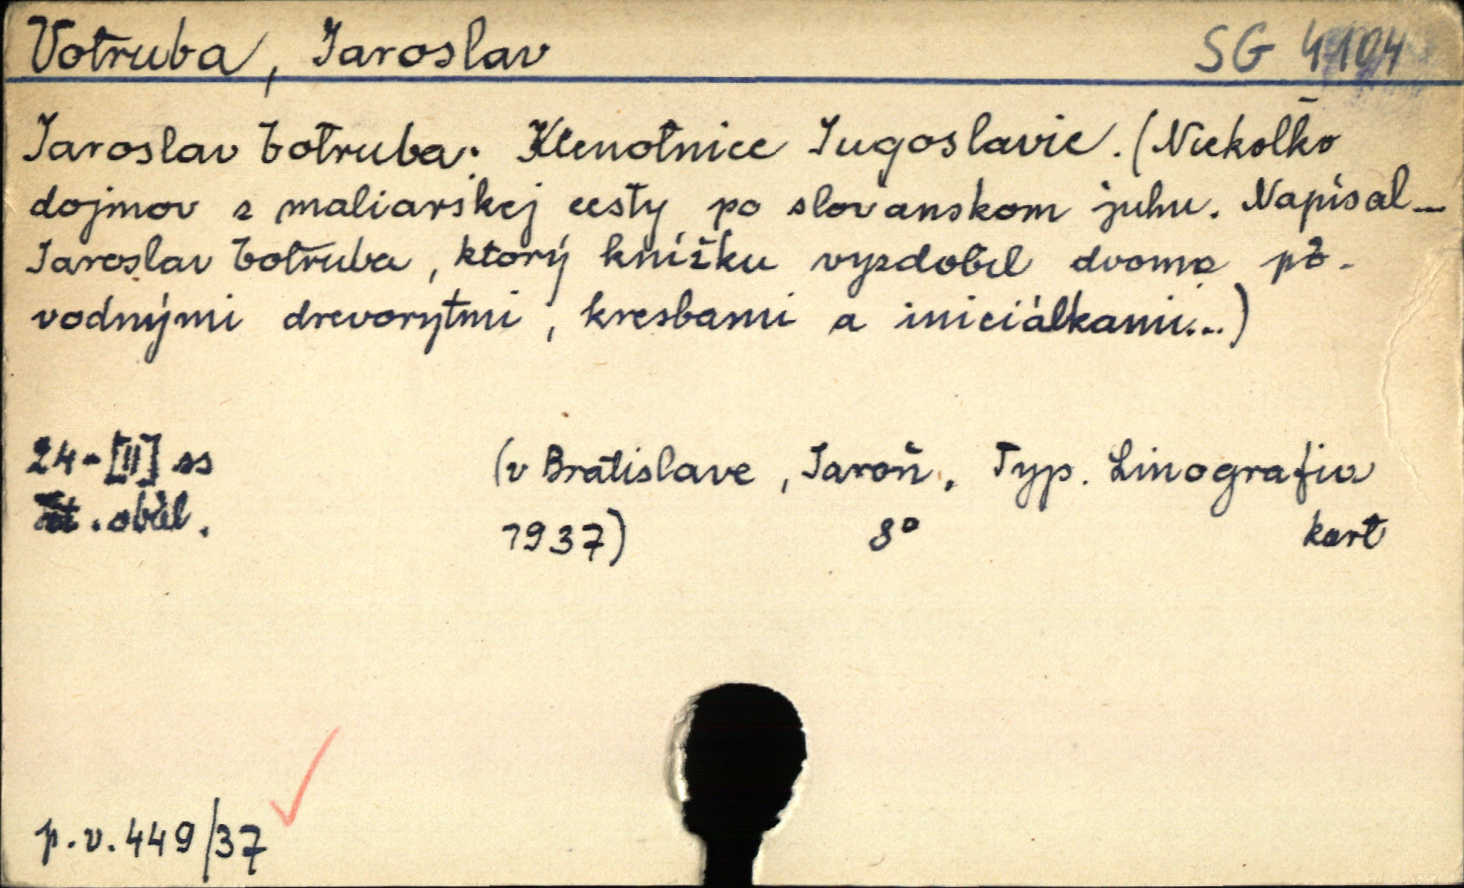 Votruba, Jaroslav SG 4104
Jaroslav Votruba. Klenotnice Jugoslavie. (Niekoľko
dojmov z maliarskej cesty po slovanskom juhu. Napísal
Jaroslav Votruba, ktorý knižku vyzdobil dvoma pô-
vodnými drevorytmi, kresbami a iniciálkami...)
24-[II] ss (v Bratislave, Jaroň. Typ. Linografia
obál. 1937) 8° kart
p.v. 449/37